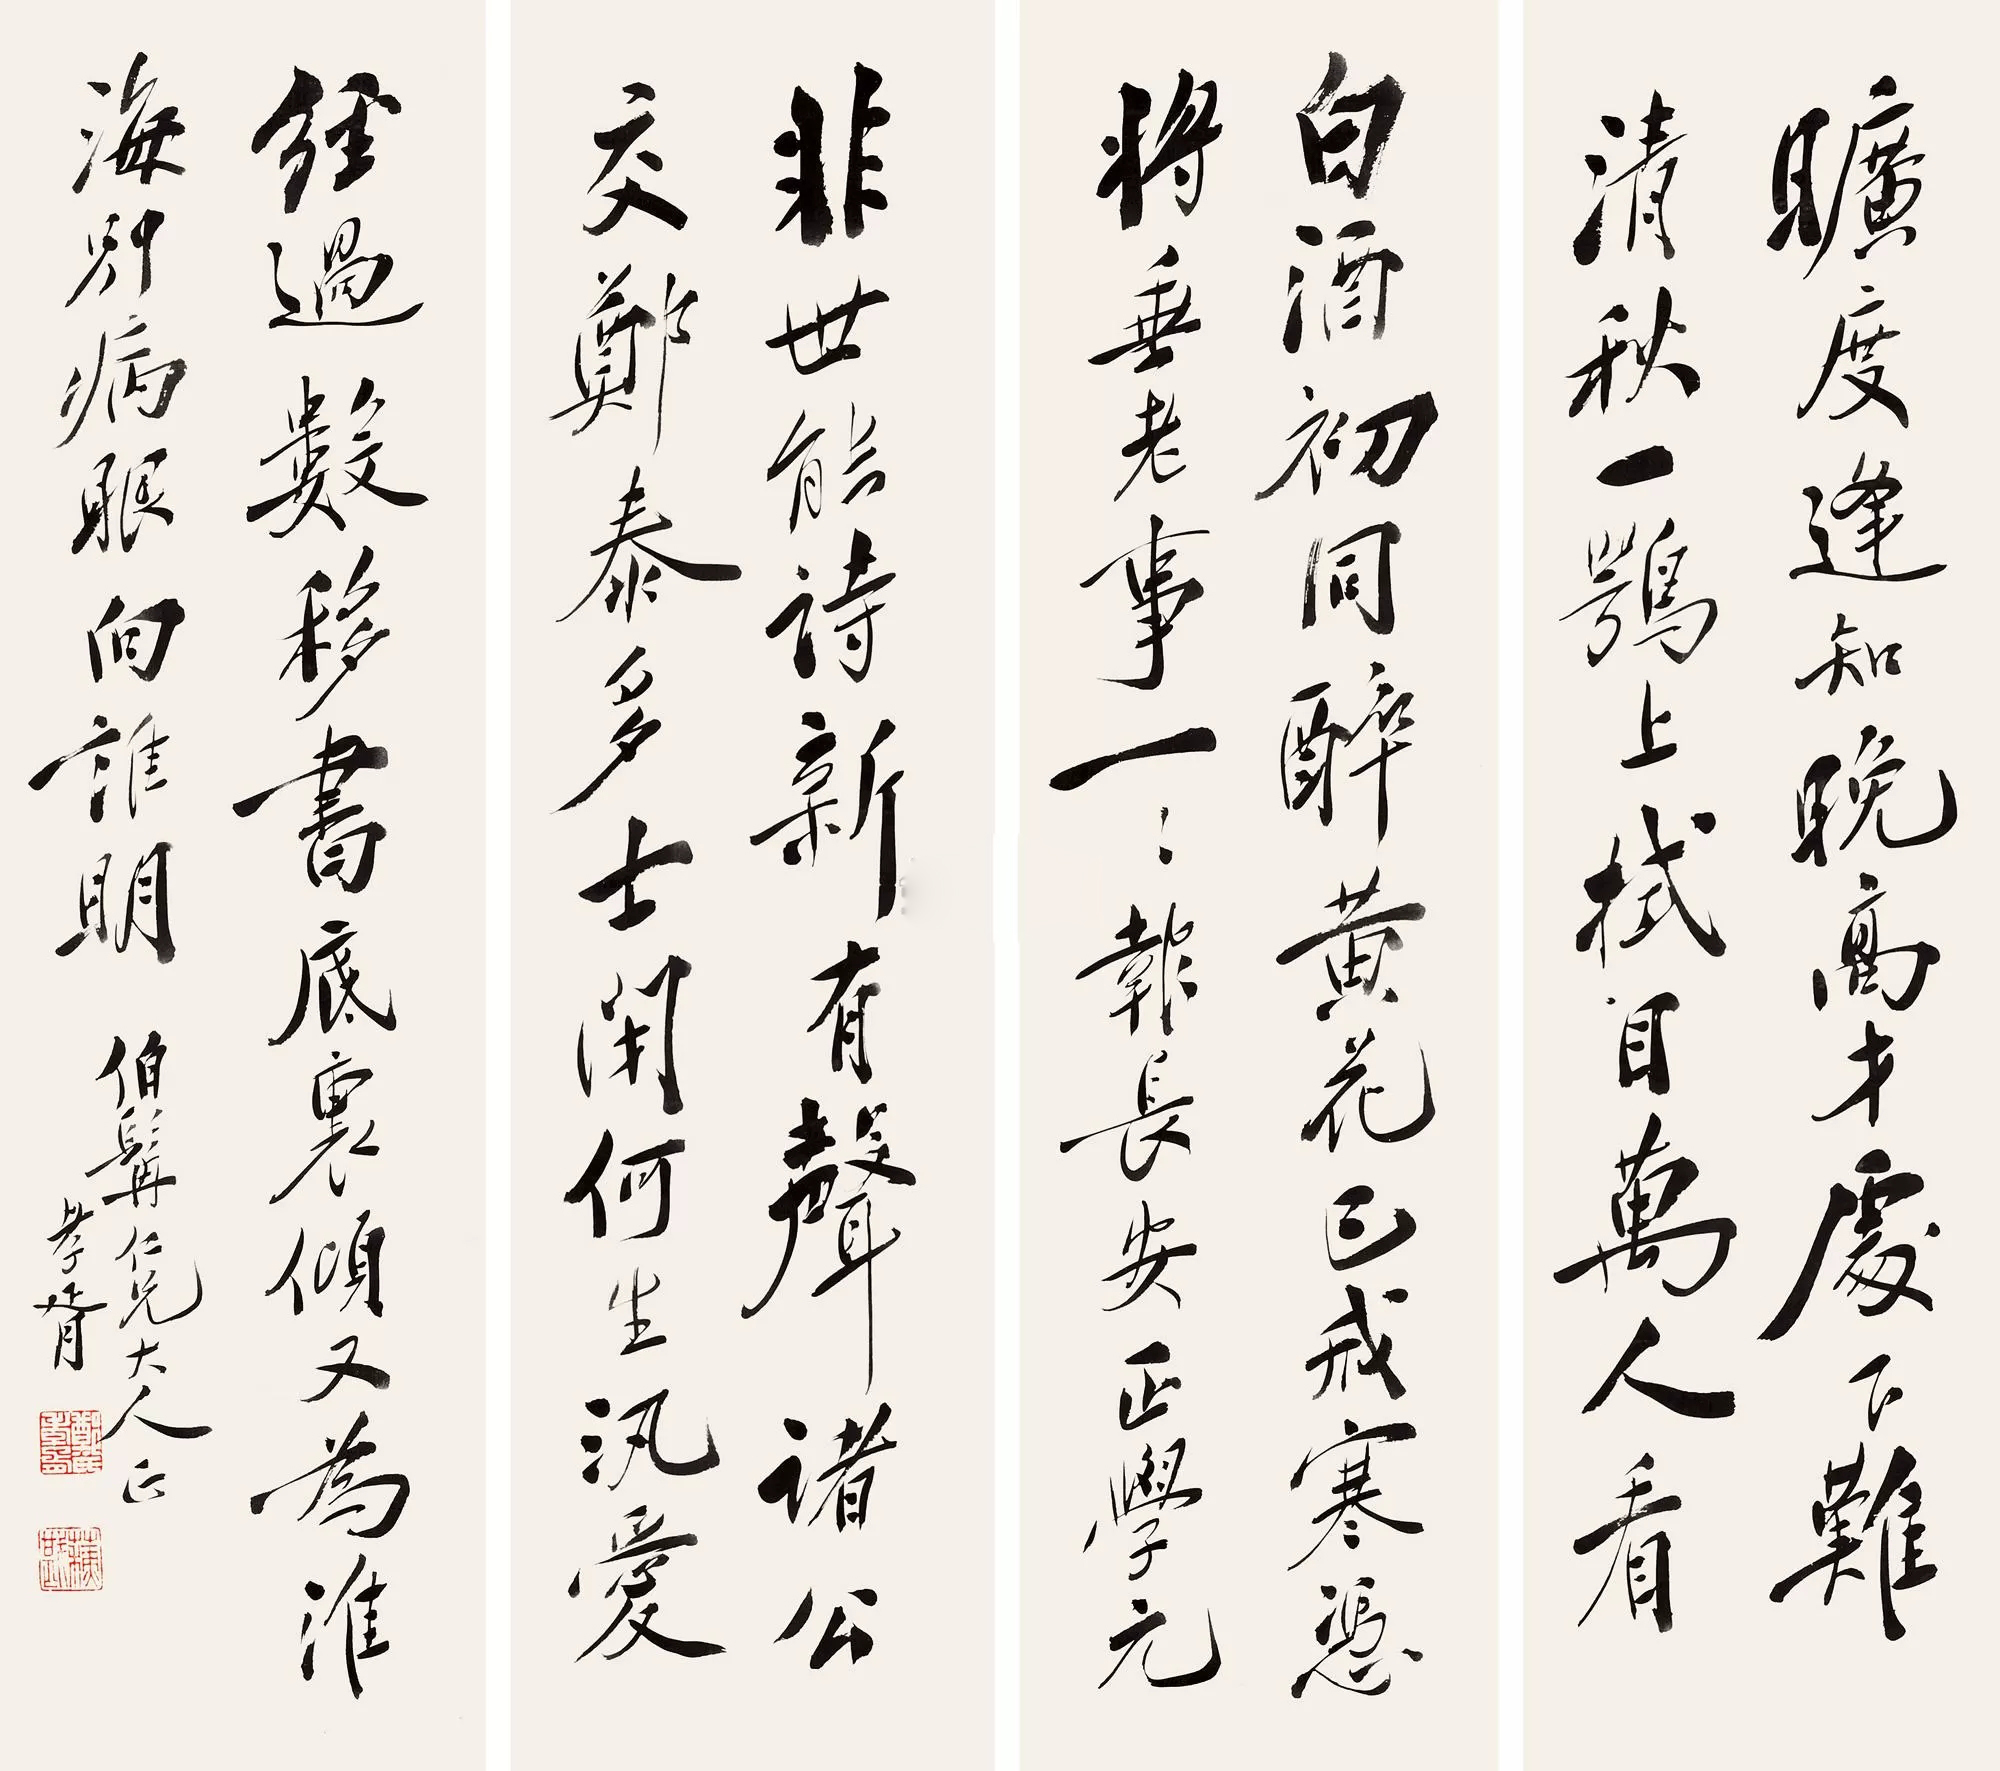 曠度逢知晚高才處下難
清秋一鶚上拭目萬人看
白酒初同醉黃花已戒寒憑
將垂老事一〻報長安正學元
非世能詩新有聲諸公
交鄭泰多士何生汎愛
經過數移書底裏傾又為淮
海別病眼向誰明
伯髯仁兄大人正
孝胥
蘇戡